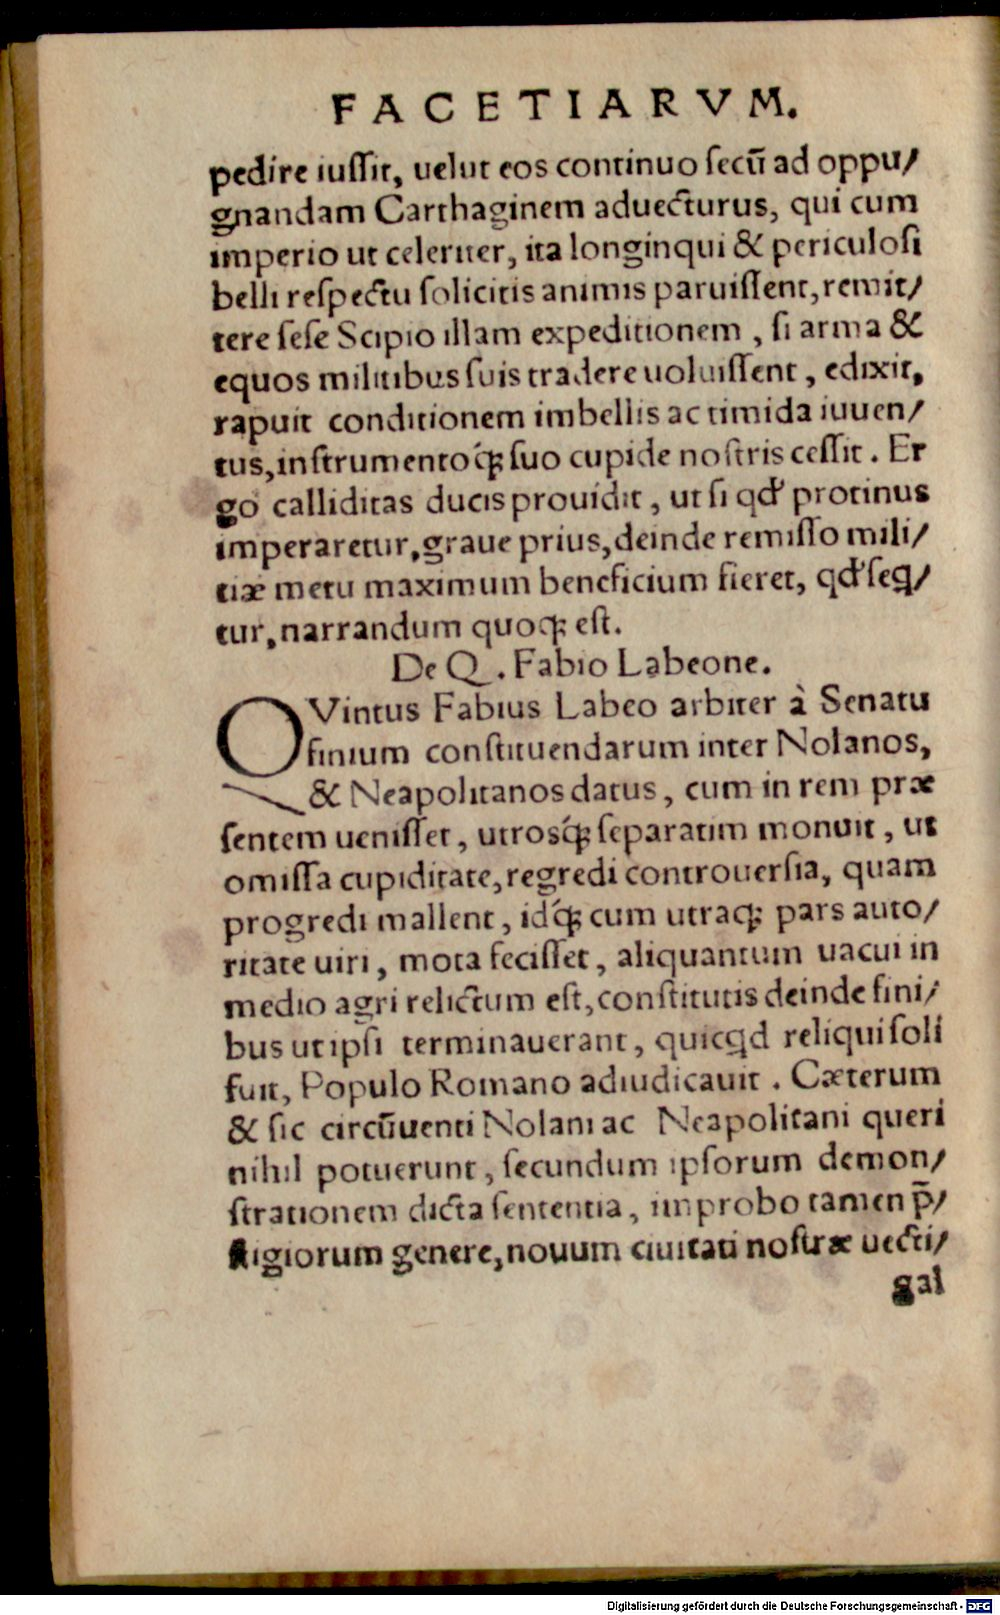 FACETIARVM.
pedire iussit, uelut eos continuo secū ad oppu/
gnandam Carthaginem aduecturus, qui cum
imperio ut celeriter, ita longinqui & periculosi
belli respectu solicitis animis paruissent, remit/
tere sese Scipio illam expeditionem , si arma &
equos militibus suis tradere uoluissent , edixit,
rapuit conditionem imbellis ac timida iuuen/
tus, instrumentoq́; suo cupide nostris cessit . Er
go calliditas ducis prouidit , ut si qd' protinus
imperaretur, graue prius, deinde remisso mili/
tiæ metu maximum beneficium fieret, qd' seq̃/
tur, narrandum quoq; est.
De Q. Fabio Labeone.
QVintus Fabius Labeo arbiter à Senatu
finium constituendarum inter Nolanos,
& Neapolitanos datus , cum in rem præ
sentem uenisset , utrosq́; separatim monuit , ut
omissa cupiditate, regredi controuersia, quam
progredi mallent , idq́; cum utraq; pars auto/
ritate uiri , mota fecisset , aliquantum uacui in
medio agri relictum est, constitutis deinde fini/
bus ut ipsi terminauerant , quicqd reliqui soli
fuit, Populo Romano adiudicauit . Cæterum
& sic circūuenti Nolani ac Neapolitani queri
nihil potuerunt , secundum ipsorum demon/
strationem dicta sententia , improbo tamen p̄/
stigiorum genere, nouum ciuitati nostræ uecti/
gal
Digitalisierung gefördert durch die Deutsche Forschungsgemeinschaft - DFG